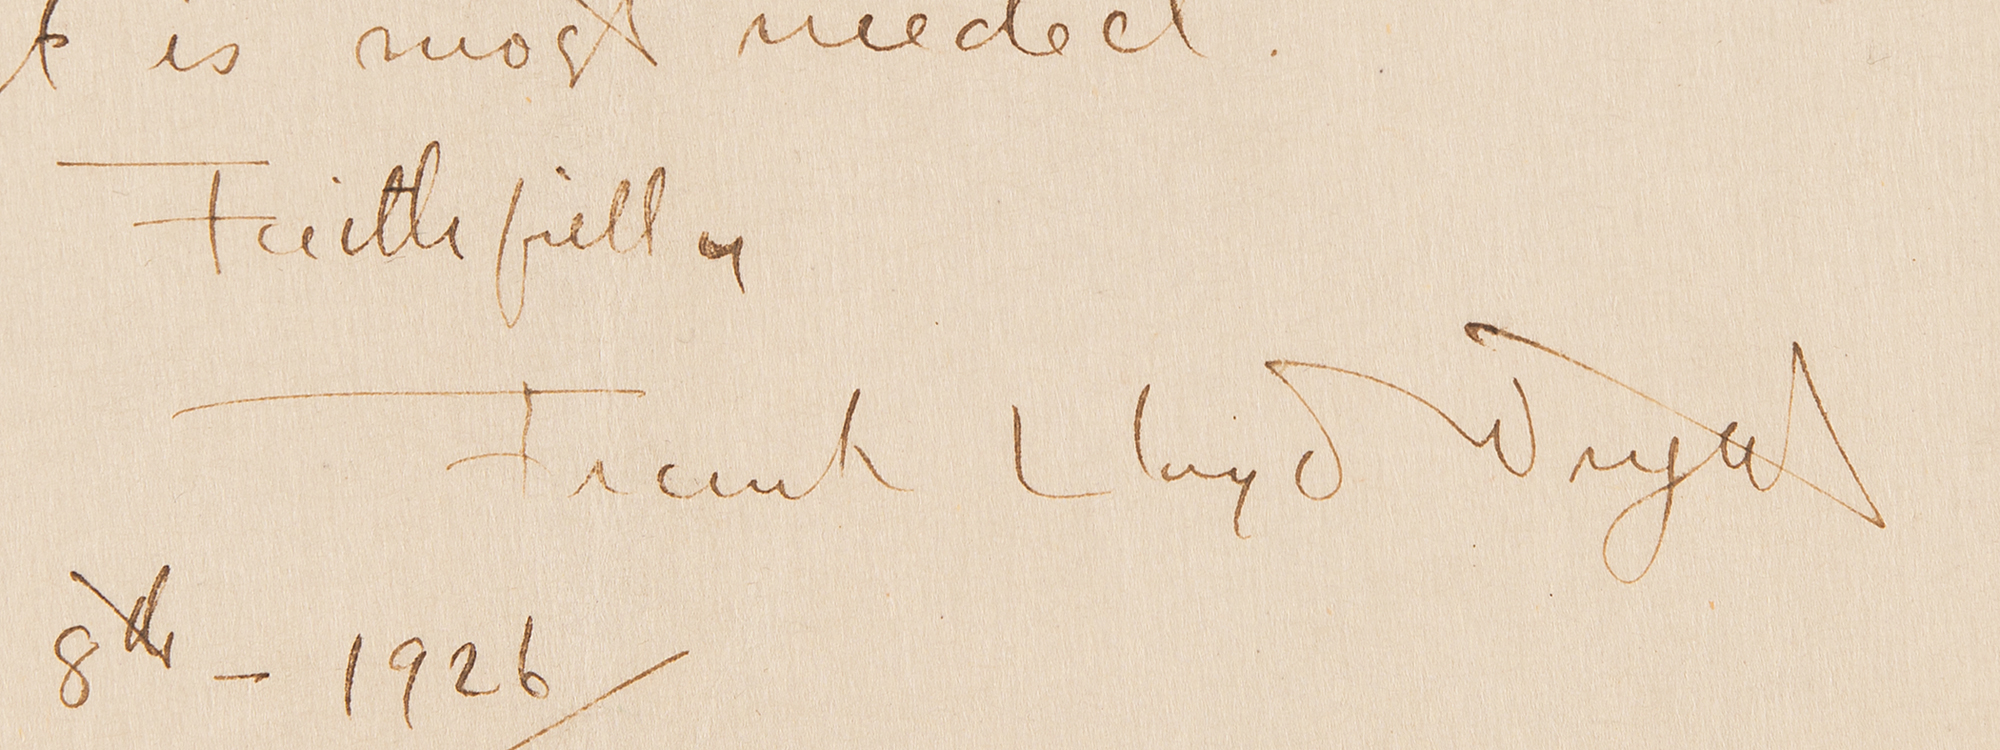 is most needed.
Faithfully
Frank Lloyd Wright
8th - 1926